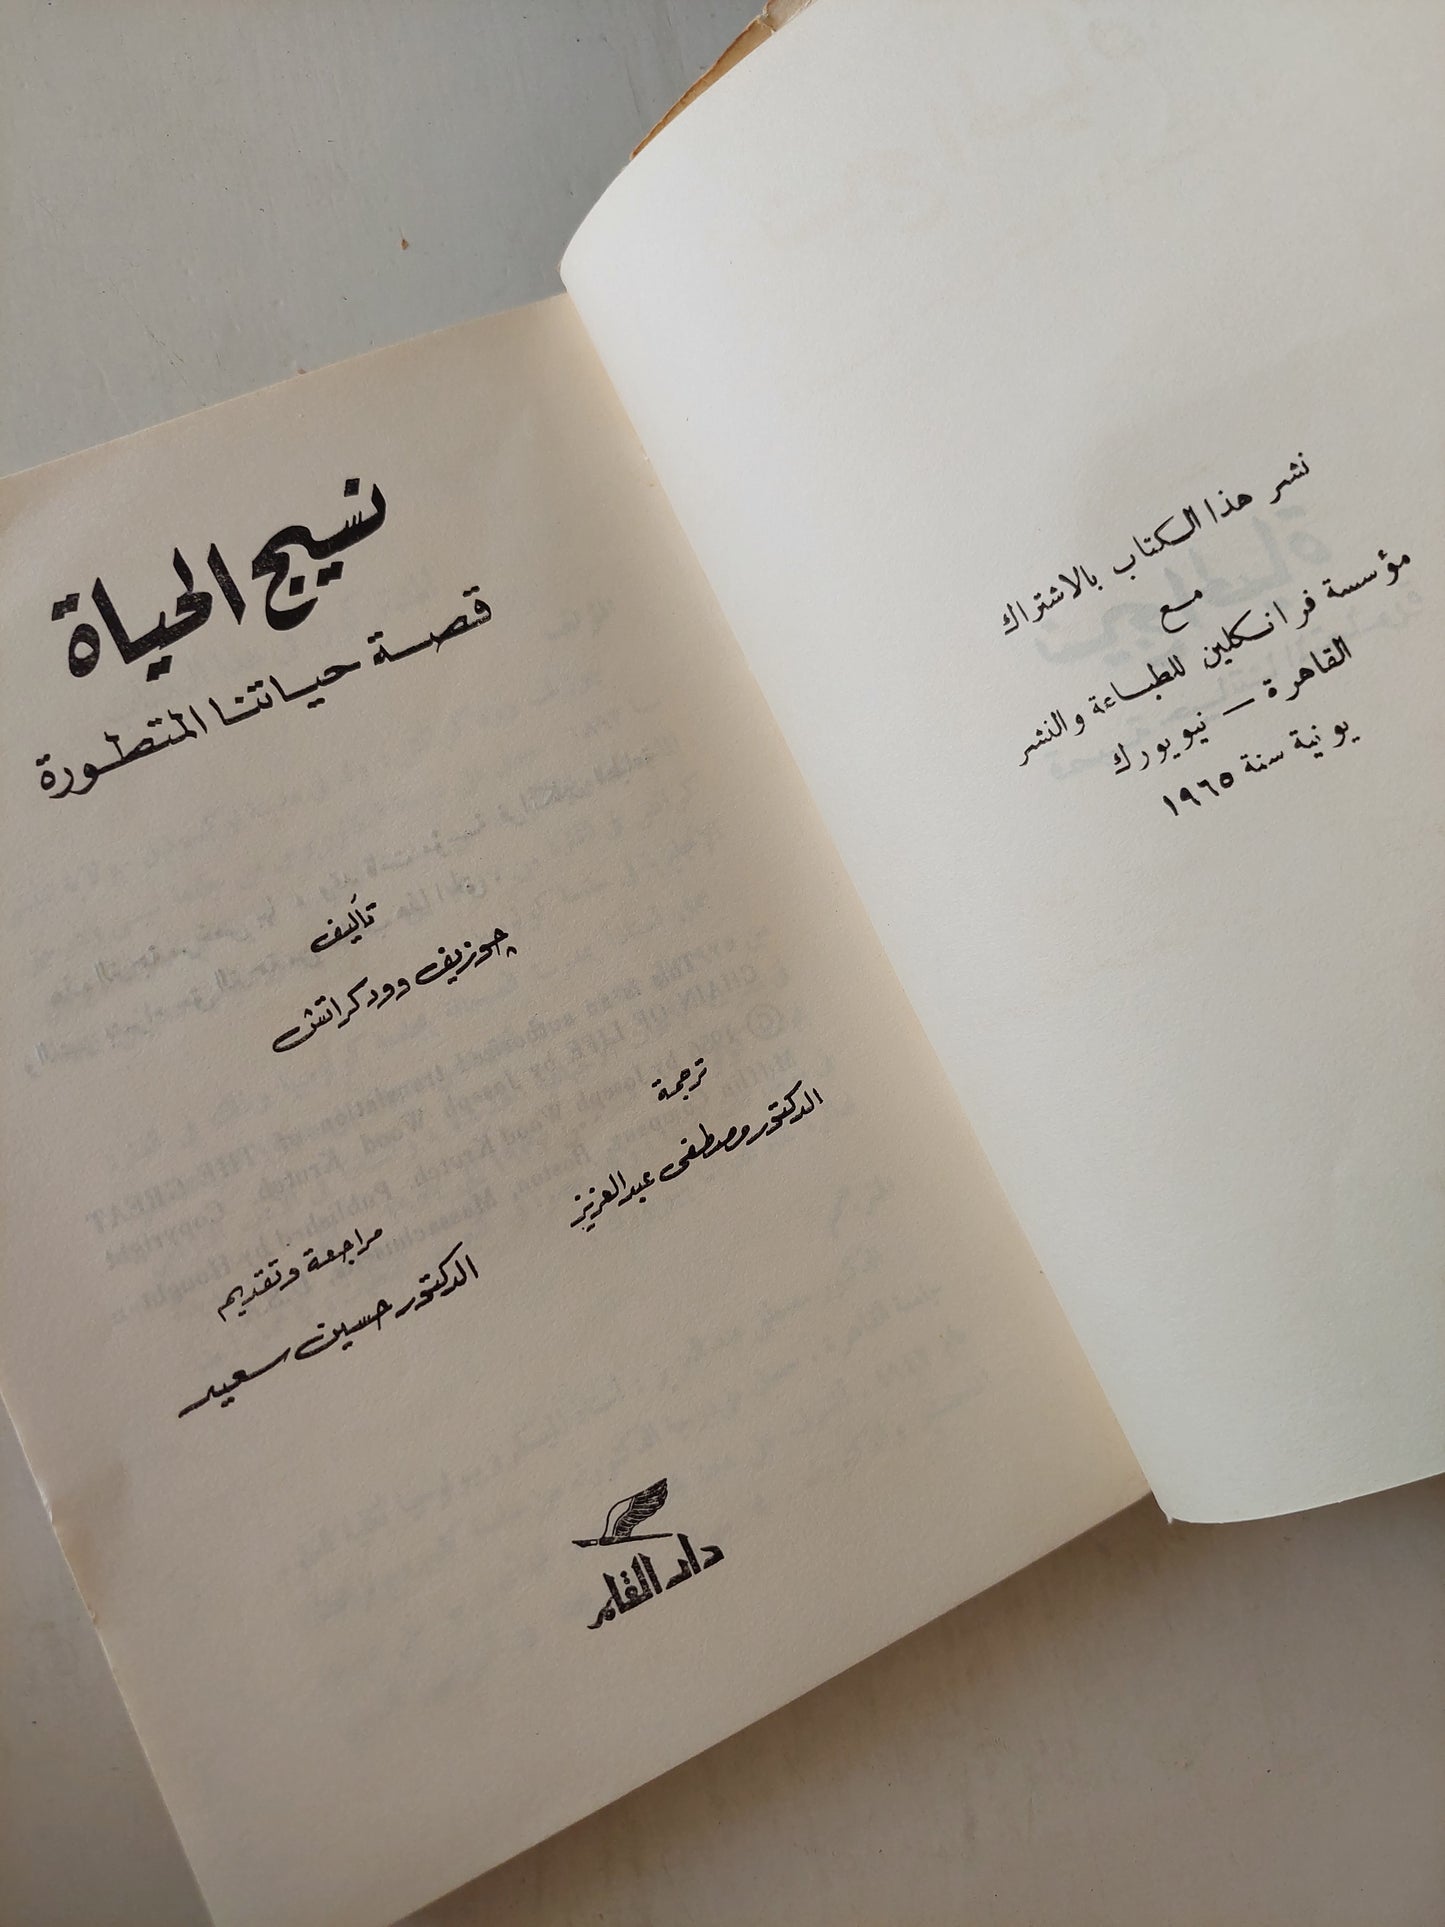 نشر هذا الكتاب بالاشتراك
مع
مؤسسة فرانكلين للطباعة والنشر
القاهرة – نيويورك
يونية سنة ١٩٦٥
نسيج الحياة
قصة حياتنا المتطورة
تأليف
چوزيف وودكراتش
ترجمة
الدكتور مصطفى عبدالعزيز
مراجعة وتقديم
الدكتور حسين سعيد
دار القلم